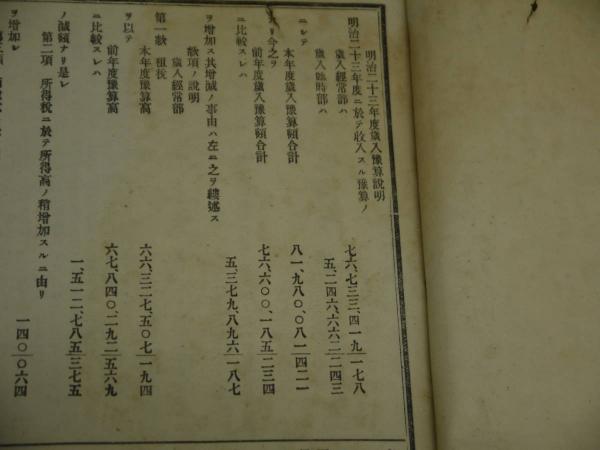 明治二十三年度歲入豫算說明
明治二十三年度ニ於テ收入スル豫算ノ
歲入經常部ハ 七六、七三三、四一九 一七八
歲入臨時部ハ 五、二四六、六六二 二四三
ニシテ
本年度歲入豫算額合計 八一、九八〇、〇八一 四二一
ナリ今之ヲ
前年度歲入豫算額合計 七六、六〇〇、一八五 二三四
ニ比較スレハ 五、三七九、八九六 一八七
ヲ增加ス其增減ノ事由ハ左ニ之ヲ縷述ス
款項ノ說明
歲入經常部
第一款 租稅
本年度豫算高 六六、三二七、五〇七 一九四
ヲ以テ
前年度豫算高 六七、八四〇、二九二 五六九
ニ比較スレハ 一、五一二、七八五 三七五
ノ減額ナリ是レ
第二項 所得稅ニ於テ所得高ノ稍增加スルニ由リ
一四〇 〇六四
ヲ增加シ